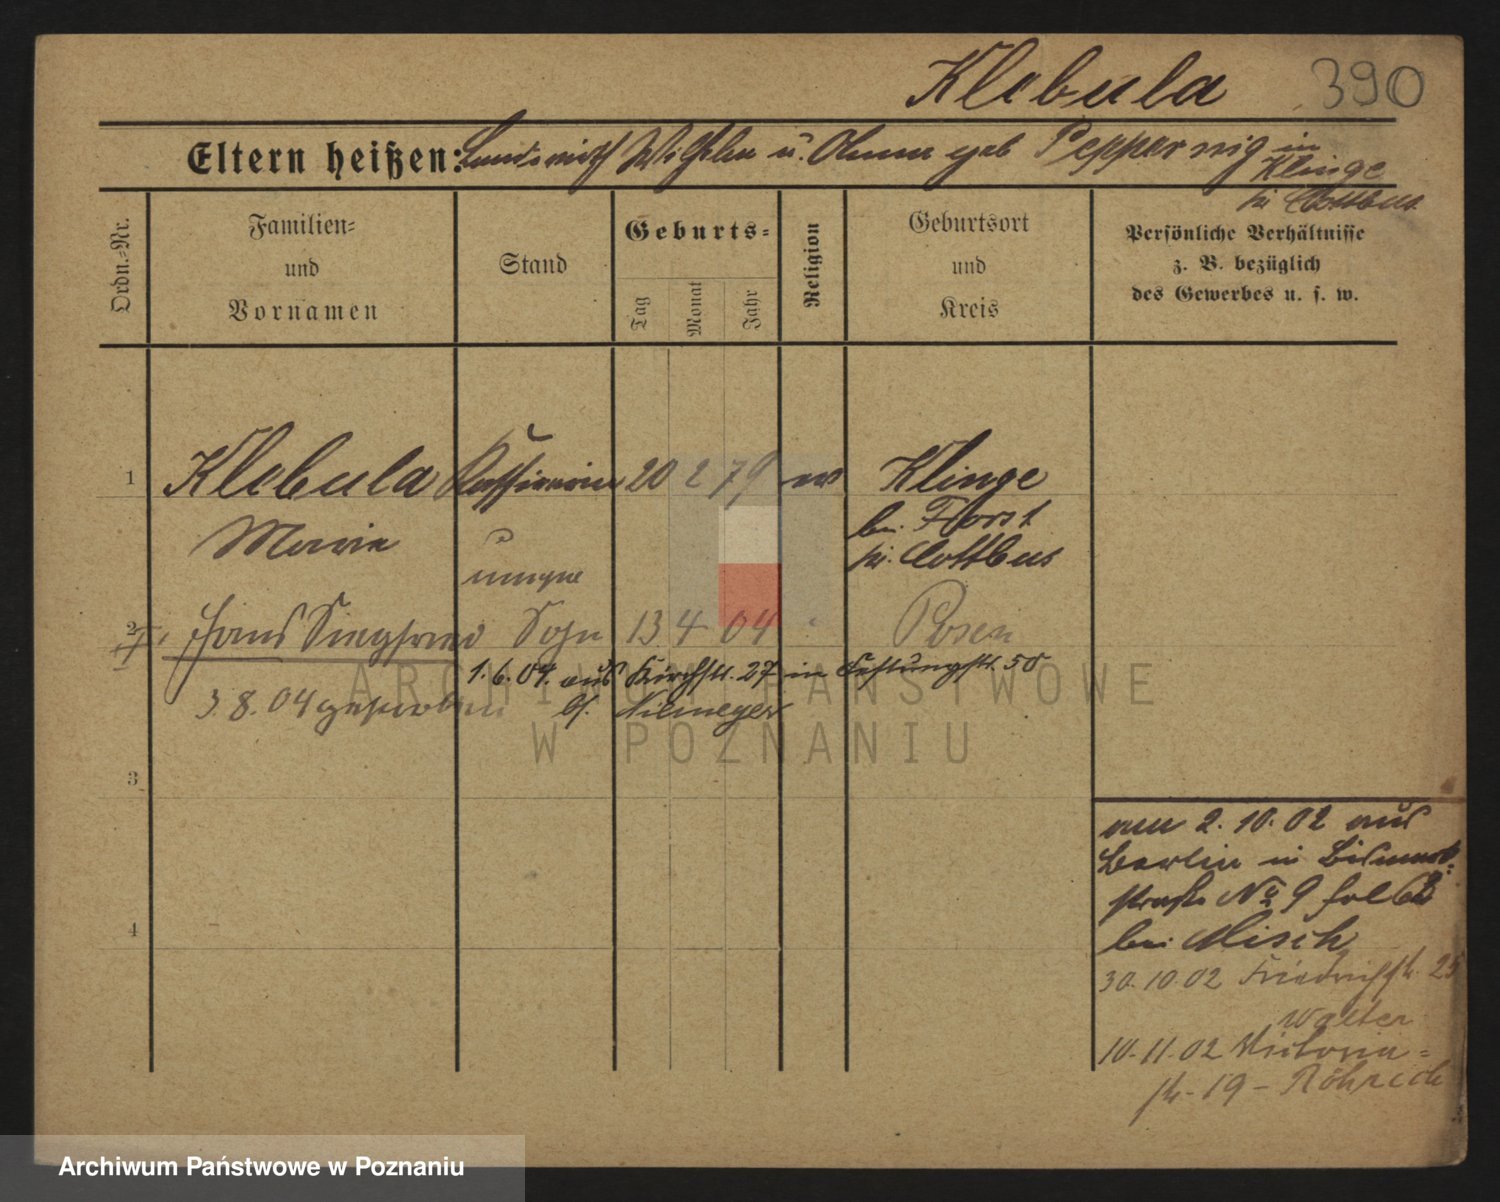 Klebula 390
Eltern heißen: Landwirth Wilhelm u. Anna geb Peppernig in
Klinge
kr Cottbus
Ordn.-Nr.
Familien-
und
Vornamen
Stand
Geburts-
Tag
Monat
Jahr
Religion
Geburtsort
und
Kreis
Persönliche Verhältnisse
z. B. bezüglich
des Gewerbes u. s. w.
1 Klebula Kassirerin 20 2 79 ev Klinge
Marie bei Forst
kr. Cottbus
2 Hans Siegfried Sohn 13 4 04 Posen
1.6.04. aus Kirchstr. 27 in Festungstr. 50
3.8.04 gestorben b. Niemeyer
ARCHIWUM PAŃSTWOWE
W POZNANIU
3
4
am 2.10.02 aus
Berlin in Bismark-
straße No 9
bei Misch
30.10.02 Friedrichstr. 25
Walter
10.11.02 Victoria-
str. 19 - Röhrich
Archiwum Państwowe w Poznaniu